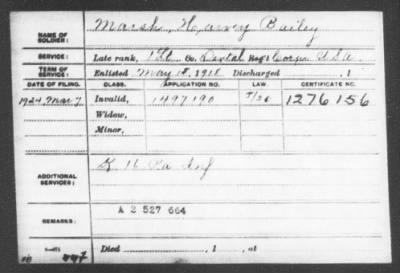 NAME OF SOLDIER: Marsh, Harvey Bailey
SERVICE: Late rank, 1st Lt Co. Dental Reg't Corps U.S.A.
TERM OF SERVICE: Enlisted May 18, 1918 Discharged , 1
DATE OF FILING. CLASS. APPLICATION NO. LAW. CERTIFICATE NO.
1924, Mar 7 Invalid, 1497190 1276156
Widow,
Minor,
ADDITIONAL SERVICES: Pa Inf
A 2 527 664
REMARKS:
Died , 1 , at